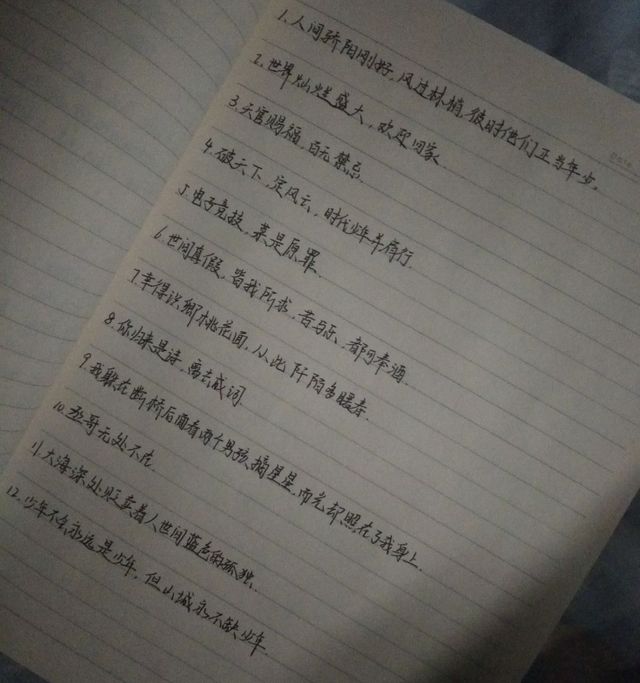 1.人间骄阳刚好,风过林梢,彼时他们正当年少.
2.世界灿烂盛大,欢迎回家.
3.天官赐福,百无禁忌.
4.破云下,定风云,时代少年并肩行.
5.电子竞技,菜是原罪.
6.世间真假,皆我所求,苦与乐,都可奉酒.
7.幸得识卿桃花面,从此阡陌多暖春.
8.你归来是诗,离去成词.
9.我躲在断桥后面看两个男孩摘星星,而光却照在了我身上.
10.丞哥无处不在.
11.大海深处贩卖着人世间蓝色的孤独.
12.少年不会永远是少年,但山城永不缺少年.